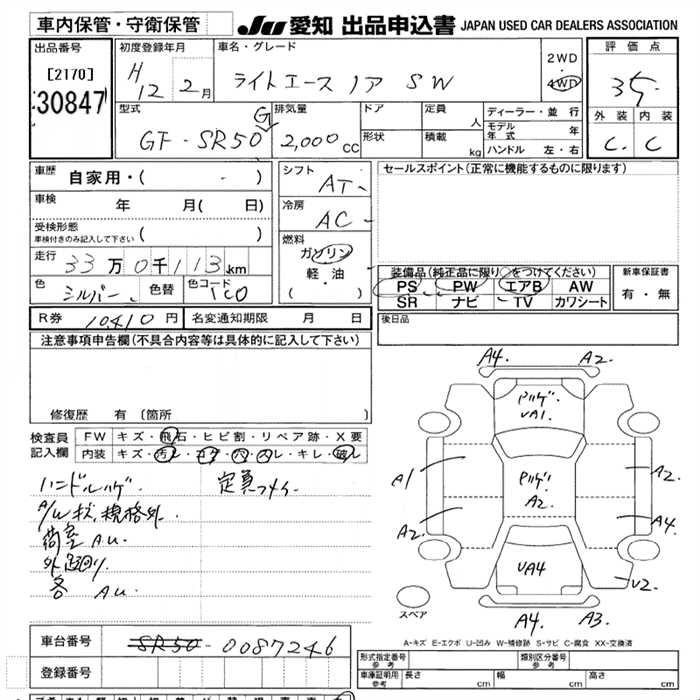 車内保管・守衛保管
JU 愛知 出品申込書 JAPAN USED CAR DEALERS ASSOCIATION
出品番号
[2170]
30847
初度登録年月
H 12 2月
車名・グレード
ライトエース ノア SW
2WD
・
4WD
評価点
3.5
外装 内装
C C
型式
GF-SR50G
排気量
2,000cc
ドア
形状
定員 人
積載 kg
ディーラー・並行
モデル年式 年
ハンドル 左・右
車歴 自家用・( )
車検 年 月( 日)
受検形態
車検付きのみ記入して下さい ( )
走行 33万0千113km
色 シルバー 色替 色コード 1C0
シフト AT
冷房 AC
燃料
ガソリン
軽・油
( )
セールスポイント(正常に機能するものに限ります)
装備品(純正品に限り○をつけてください)
PS PW エアB AW
SR ナビ TV カワシート
新車保証書
有・無
R券 10410円 名変通知期限 月 日
後日品
注意事項申告欄(不具合内容等は具体的に記入して下さい)
修復歴 有 〔箇所 〕
検査員記入欄
FW キズ・飛石・ヒビ割・リペア跡・X要
内装 キズ・汚レ・コゲ・穴・スレ・キレ・破レ
ハンドルハゲ 定員7メイ
A/W キズ、規格外
荷室 A.U.
外廻り
各 A.U.
A4. A2.
ハゲ・
UA1.
A1 A2
ハゲ・
A2.
A2. A4
UA4
U2
スペア
A4. A3.
A-キズ E-エクボ U-凹み W-補修跡 S-サビ C-腐食 XX-交換済
車台番号 SR50-0087246
登録番号
形式指定番号 参考
類別区分番号 参考
車庫証明用 参考 長さ cm 幅 cm 高さ cm